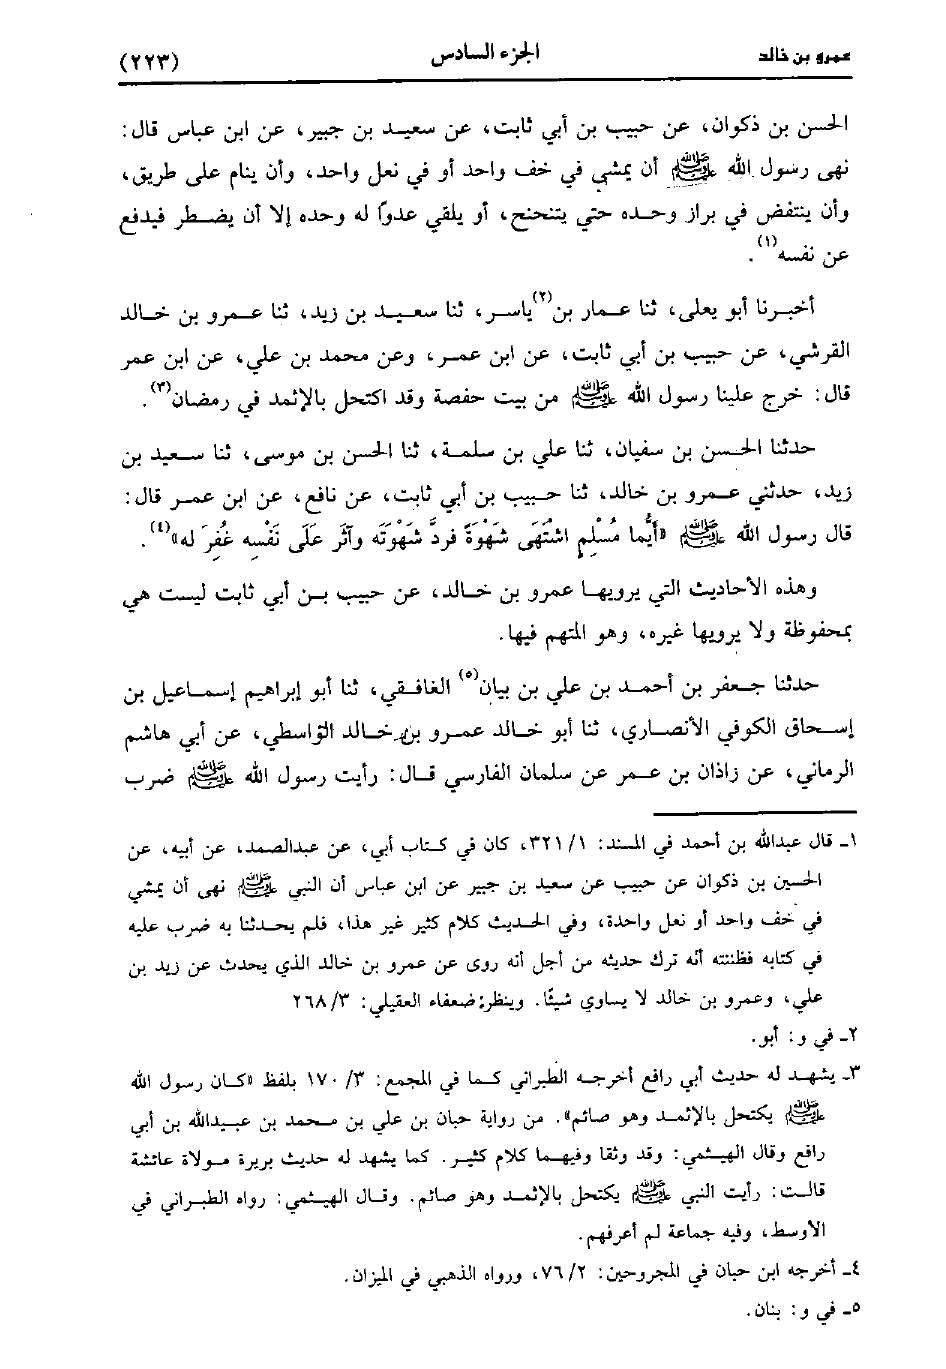 عمرو بن خالد الجزء السادس (٢٢٣)
الحسن بن ذكوان، عن حبيب بن أبي ثابت، عن سعيد بن جبير، عن ابن عباس قال:
نهى رسول الله ﷺ أن يمشي في خف واحد أو في نعل واحد، وأن ينام على طريق،
وأن ينتفض في براز وحده حتى يتنحنح، أو يلقى عدوًا له وحده إلا أن يضطر فيدفع
عن نفسه(١).
أخبرنا أبو يعلى، ثنا عمار بن(٢) ياسر، ثنا سعيد بن زيد، ثنا عمرو بن خالد
القرشي، عن حبيب بن أبي ثابت، عن ابن عمر، وعن محمد بن علي، عن ابن عمر
قال: خرج علينا رسول الله ﷺ من بيت حفصة وقد اكتحل بالإثمد في رمضان(٣).
حدثنا الحسن بن سفيان، ثنا علي بن سلمة، ثنا الحسن بن موسى، ثنا سعيد بن
زيد، حدثني عمرو بن خالد، ثنا حبيب بن أبي ثابت، عن نافع، عن ابن عمر قال:
قال رسول الله ﷺ «أَيُّما مُسْلِمٍ اشْتَهَى شَهْوَةً فردَّ شَهْوَتَه وآثَر عَلَى نَفْسِه غُفِرَ له»(٤).
وهذه الأحاديث التي يرويها عمرو بن خالد، عن حبيب بن أبي ثابت ليست هي
بمحفوظة ولا يرويها غيره، وهو المتهم فيها.
حدثنا جعفر بن أحمد بن علي بن بيان(٥) الغافقي، ثنا أبو إبراهيم إسماعيل بن
إسحاق الكوفي الأنصاري، ثنا أبو خالد عمرو بن خالد الواسطي، عن أبي هاشم
الرماني، عن زاذان بن عمر عن سلمان الفارسي قال: رأيت رسول الله ﷺ ضرب
١ـ قال عبدالله بن أحمد في المسند: ١/ ٣٢١، كان في كتاب أبي، عن عبدالصمد، عن أبيه، عن
الحسين بن ذكوان عن حبيب عن سعيد بن جبير عن ابن عباس أن النبي ﷺ نهى أن يمشي
في خف واحد أو نعل واحدة، وفي الحديث كلام كثير غير هذا، فلم يحدثنا به ضرب عليه
في كتابه فظننته أنه ترك حديثه من أجل أنه روى عن عمرو بن خالد الذي يحدث عن زيد بن
علي، وعمرو بن خالد لا يساوي شيئًا. وينظر: ضعفاء العقيلي: ٣/ ٢٦٨
٢ـ في و: أبو.
٣ـ يشهد له حديث أبي رافع أخرجه الطبراني كما في المجمع: ٣/ ١٧٠ بلفظ «كان رسول الله
ﷺ يكتحل بالإثمد وهو صائم». من رواية حبان بن علي بن محمد بن عبيدالله بن أبي
رافع وقال الهيثمي: وقد وثقا وفيهما كلام كثير. كما يشهد له حديث بريرة مولاة عائشة
قالت: رأيت النبي ﷺ يكتحل بالإثمد وهو صائم. وقال الهيثمي: رواه الطبراني في
الأوسط، وفيه جماعة لم أعرفهم.
٤ـ أخرجه ابن حبان في المجروحين: ٢/ ٧٦، ورواه الذهبي في الميزان.
٥ـ في و: بنان.